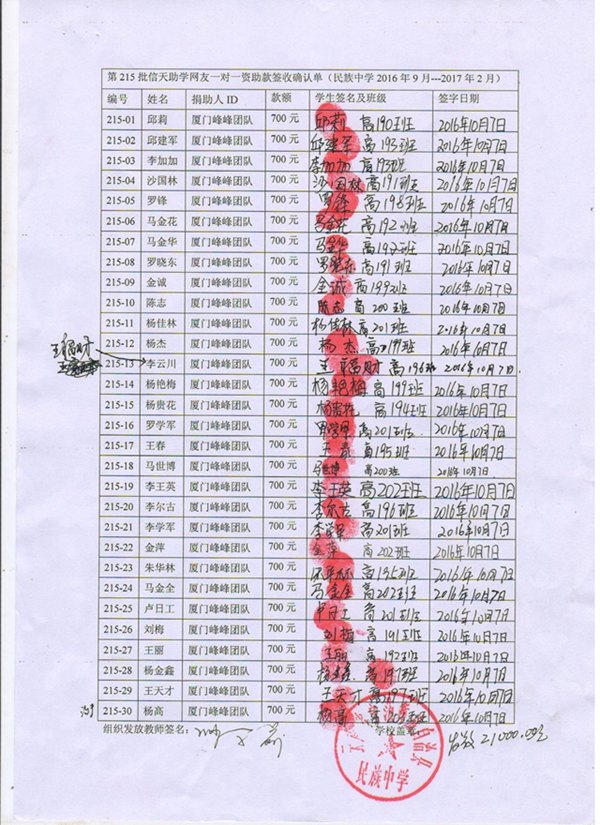 第 215 批信天助学网友一对一资助款签收确认单（民族中学 2016 年 9 月---2017 年 2 月）
编号 姓名 捐助人 ID 款额 学生签名及班级 签字日期
215-01 邱莉 厦门峰峰团队 700 元 邱莉 高190班 2016年10月7日
215-02 邱建军 厦门峰峰团队 700 元 邱建军 高193班 2016年10月7日
215-03 李加加 厦门峰峰团队 700 元 李加加 高193班 2016年10月7日
215-04 沙国林 厦门峰峰团队 700 元 沙国林 高191班 2016年10月7日
215-05 罗锋 厦门峰峰团队 700 元 罗锋 高198班 2016年10月7日
215-06 马金花 厦门峰峰团队 700 元 马金花 高192班 2016年10月7日
215-07 马金华 厦门峰峰团队 700 元 马金华 高192班 2016年10月7日
215-08 罗晓东 厦门峰峰团队 700 元 罗晓东 高191班 2016年10月7日
215-09 金诚 厦门峰峰团队 700 元 金诚 高199班 2016年10月7日
215-10 陈志 厦门峰峰团队 700 元 陈志 高200班 2016年10月7日
215-11 杨佳林 厦门峰峰团队 700 元 杨佳林 高201班 2016年10月7日
215-12 杨杰 厦门峰峰团队 700 元 杨杰 2016年10月7日
王福财
215-13 李云川 厦门峰峰团队 700 元 王福财 高196班 2016年10月7日.
215-14 杨艳梅 厦门峰峰团队 700 元 杨艳梅 高199班 2016年10月7日
215-15 杨贵花 厦门峰峰团队 700 元 杨贵花 高194班 2016年10月7日
215-16 罗学军 厦门峰峰团队 700 元 罗学军 高201班 2016年10月7日
215-17 王春 厦门峰峰团队 700 元 王春 高195班 2016年10月7日
215-18 马世博 厦门峰峰团队 700 元 马世博 高200班 2016年10月7日
215-19 李王英 厦门峰峰团队 700 元 李王英 高202班 2016年10月7日
215-20 李尔古 厦门峰峰团队 700 元 李尔古 高196班 2016年10月7日
215-21 李学军 厦门峰峰团队 700 元 李学军 高201班 2016年10月7日
215-22 金萍 厦门峰峰团队 700 元 金萍 高202班 2016年10月7日
215-23 朱华林 厦门峰峰团队 700 元 高195班 2016年10月7日
215-24 马金全 厦门峰峰团队 700 元 马金全 高202班 2016年10月7日
215-25 卢日工 厦门峰峰团队 700 元 卢日工 高201班 2016年10月7日
215-26 刘梅 厦门峰峰团队 700 元 刘梅 高191班 2016年10月7日
215-27 王丽 厦门峰峰团队 700 元 王丽 高192班 2016年10月7日
215-28 杨金鑫 厦门峰峰团队 700 元 高197班 2016年10月7日
215-29 王天才 厦门峰峰团队 700 元 王天才 高197班 2016年10月7日
215-30 杨高 厦门峰峰团队 700 元 杨高 2016年10月7日
组织发放教师签名： 学校盖章 发放21000.00元
自治县
民族中学